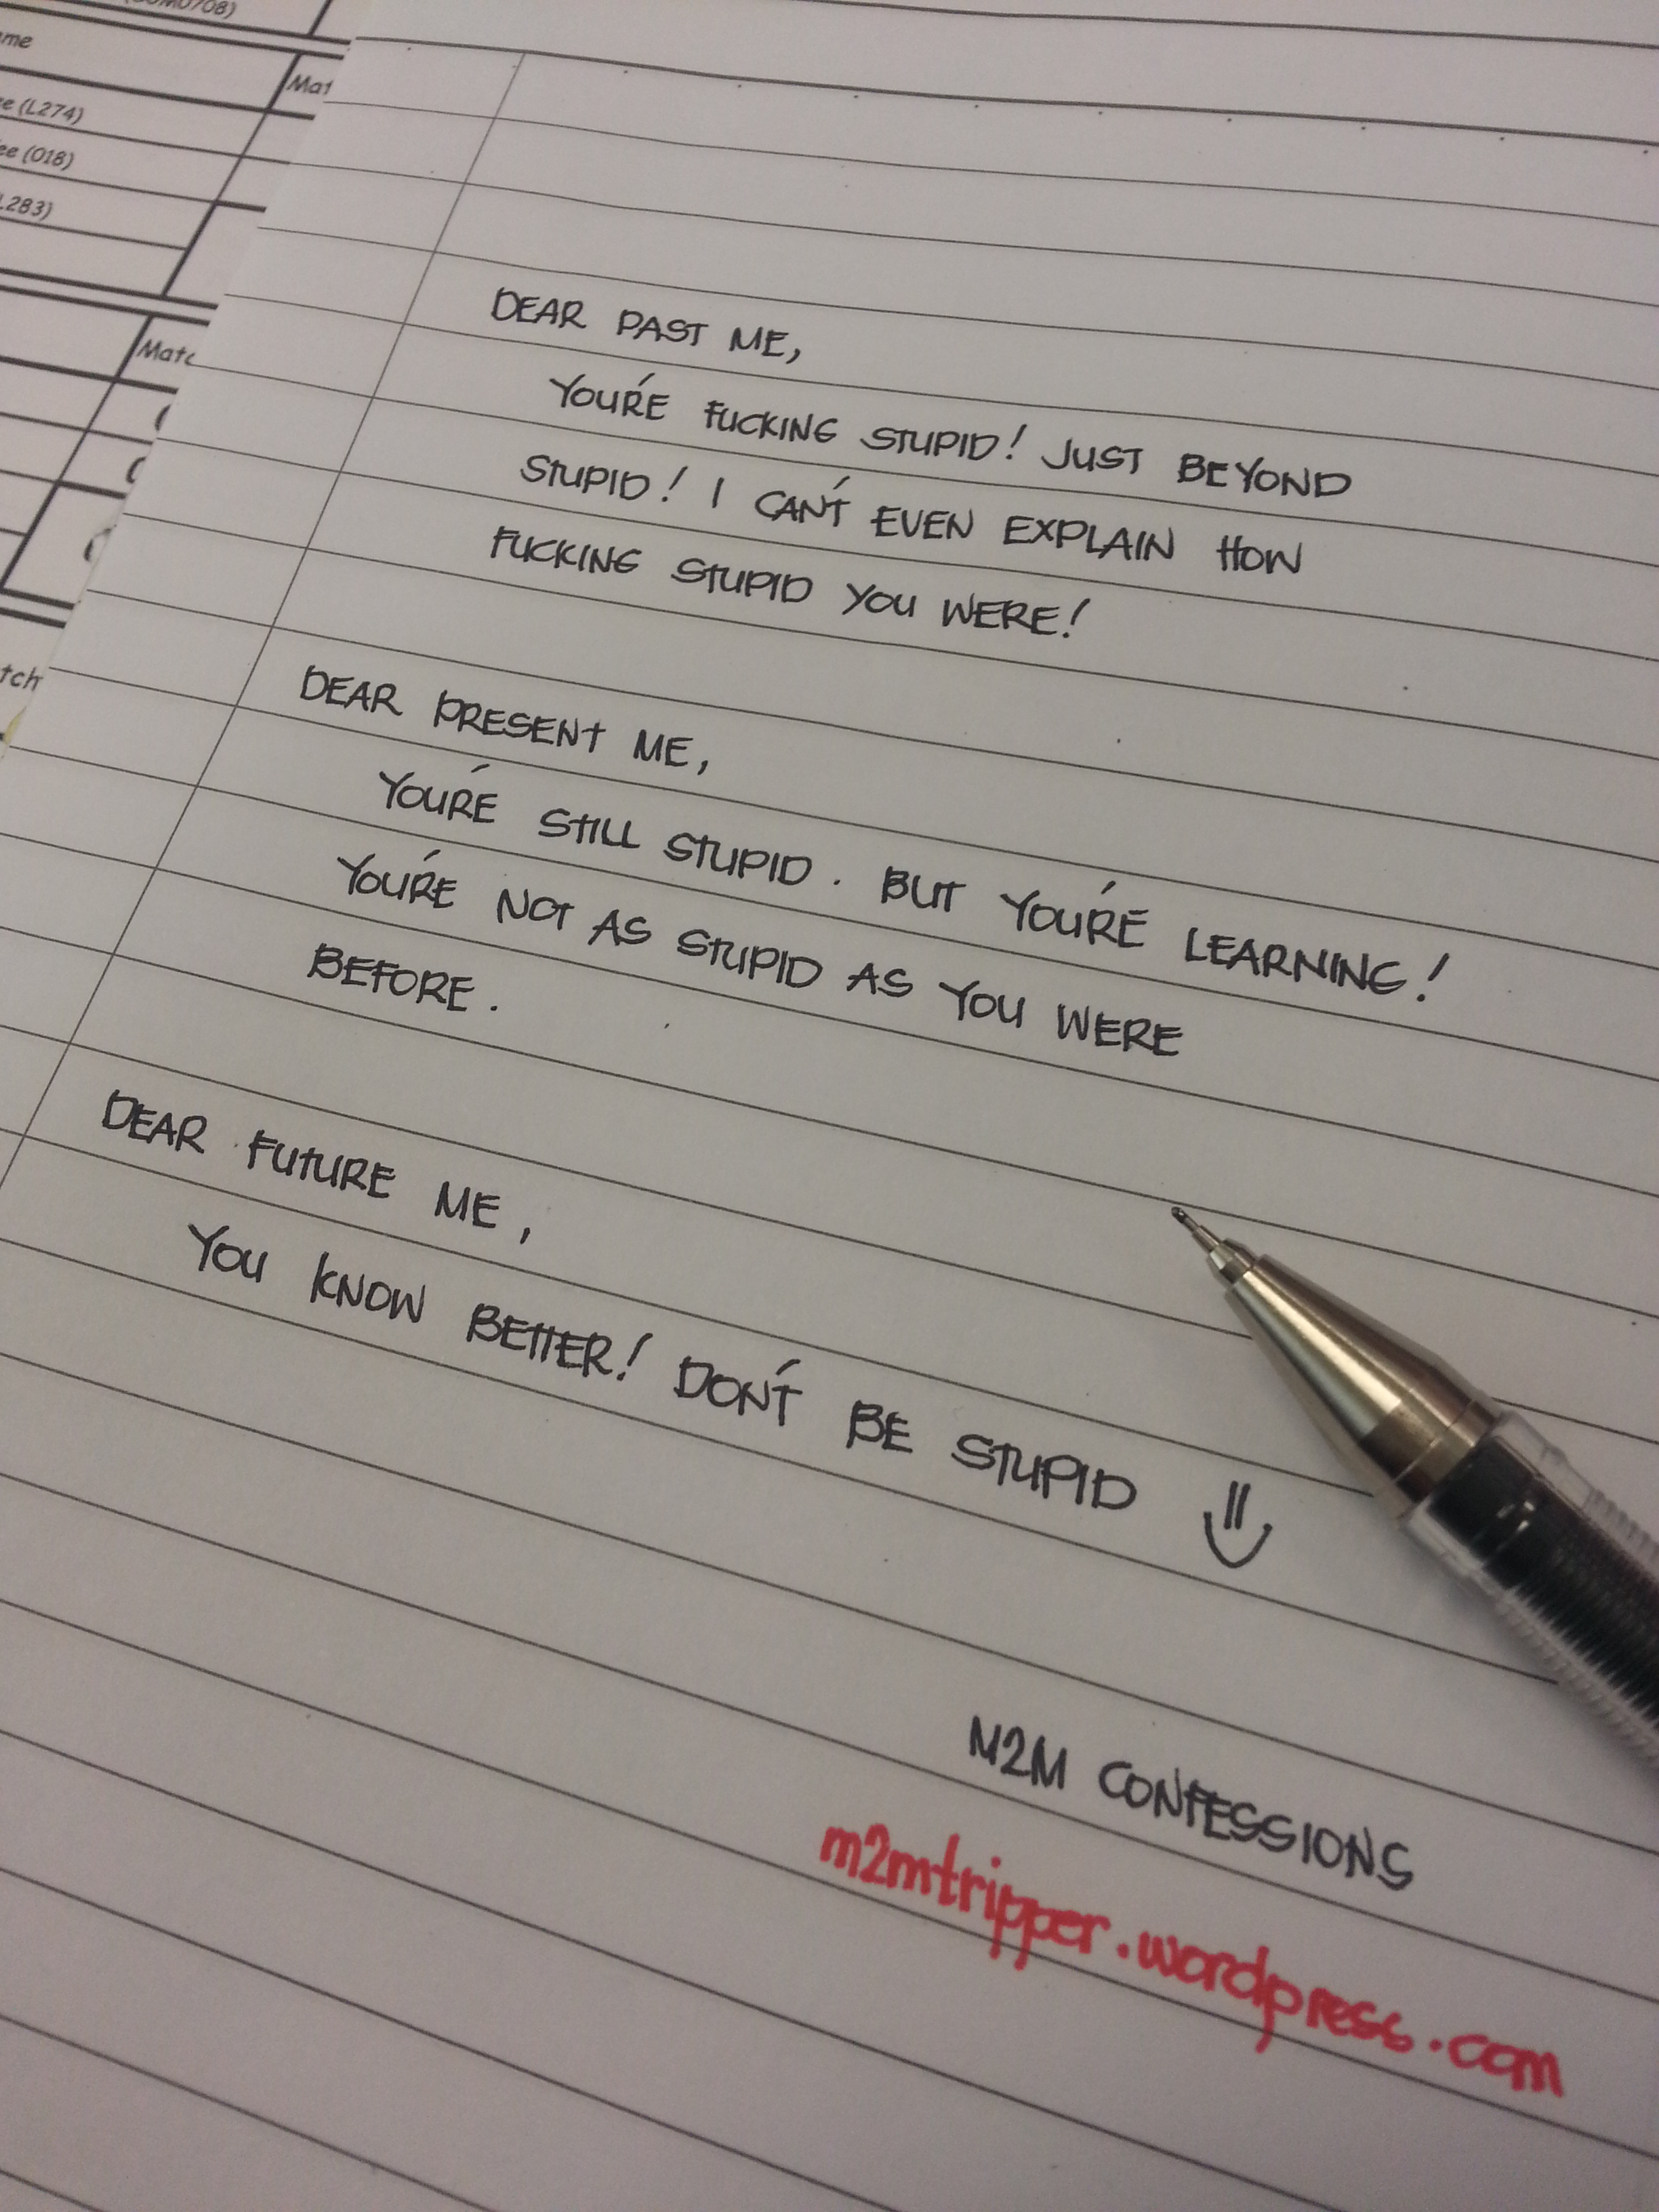 0708)
me
Mat
e (L274)
ee (018)
L283)
Matc
tch
DEAR PAST ME,
YOU'RE FUCKING STUPID! JUST BEYOND
STUPID! I CAN'T EVEN EXPLAIN HOW
FUCKING STUPID YOU WERE!
DEAR PRESENT ME,
YOU'RE STILL STUPID. BUT YOU'RE LEARNING!
YOU'RE NOT AS STUPID AS YOU WERE
BEFORE.
DEAR FUTURE ME,
YOU KNOW BETTER! DON'T BE STUPID
M2M CONFESSIONS
m2mtripper.wordpress.com